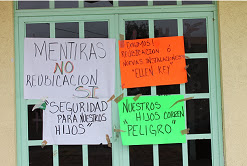 MENTIRAS
NO
REUBICACION
SI
¡EXIGIMOS!
REUBICACION O
NUEVAS INSTALACIONES
"ELLEN KEY"
"SEGURIDAD
PARA NUESTROS
HIJOS"
NUESTROS
HIJOS CORREN
"PELIGRO"